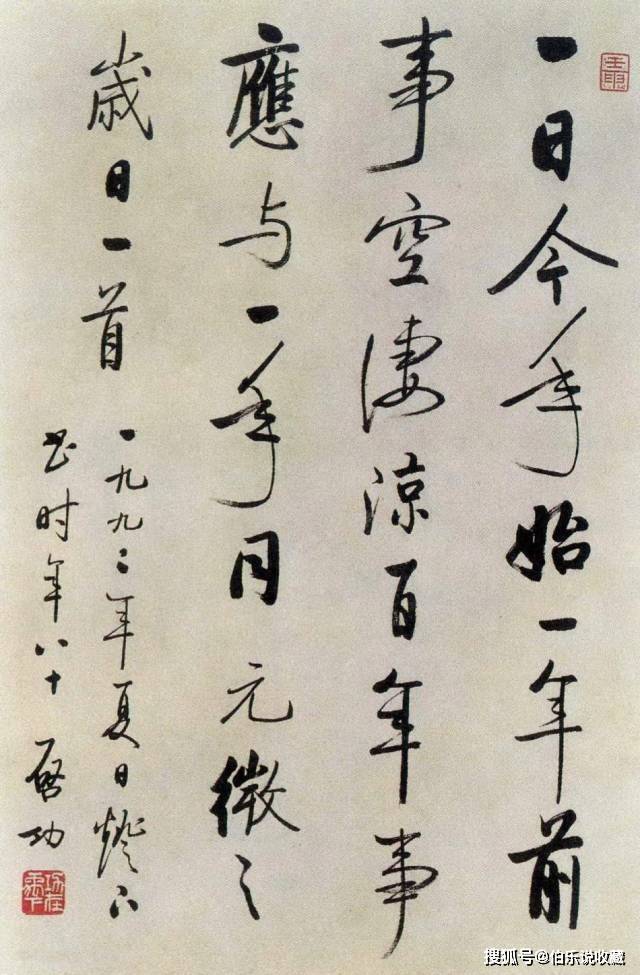 一日今年始一年前
事空凄涼百年事
應与一年同元微之
歲日一首
一九九二年夏日燈下
书时年八十啓功
搜狐号@伯乐说收藏